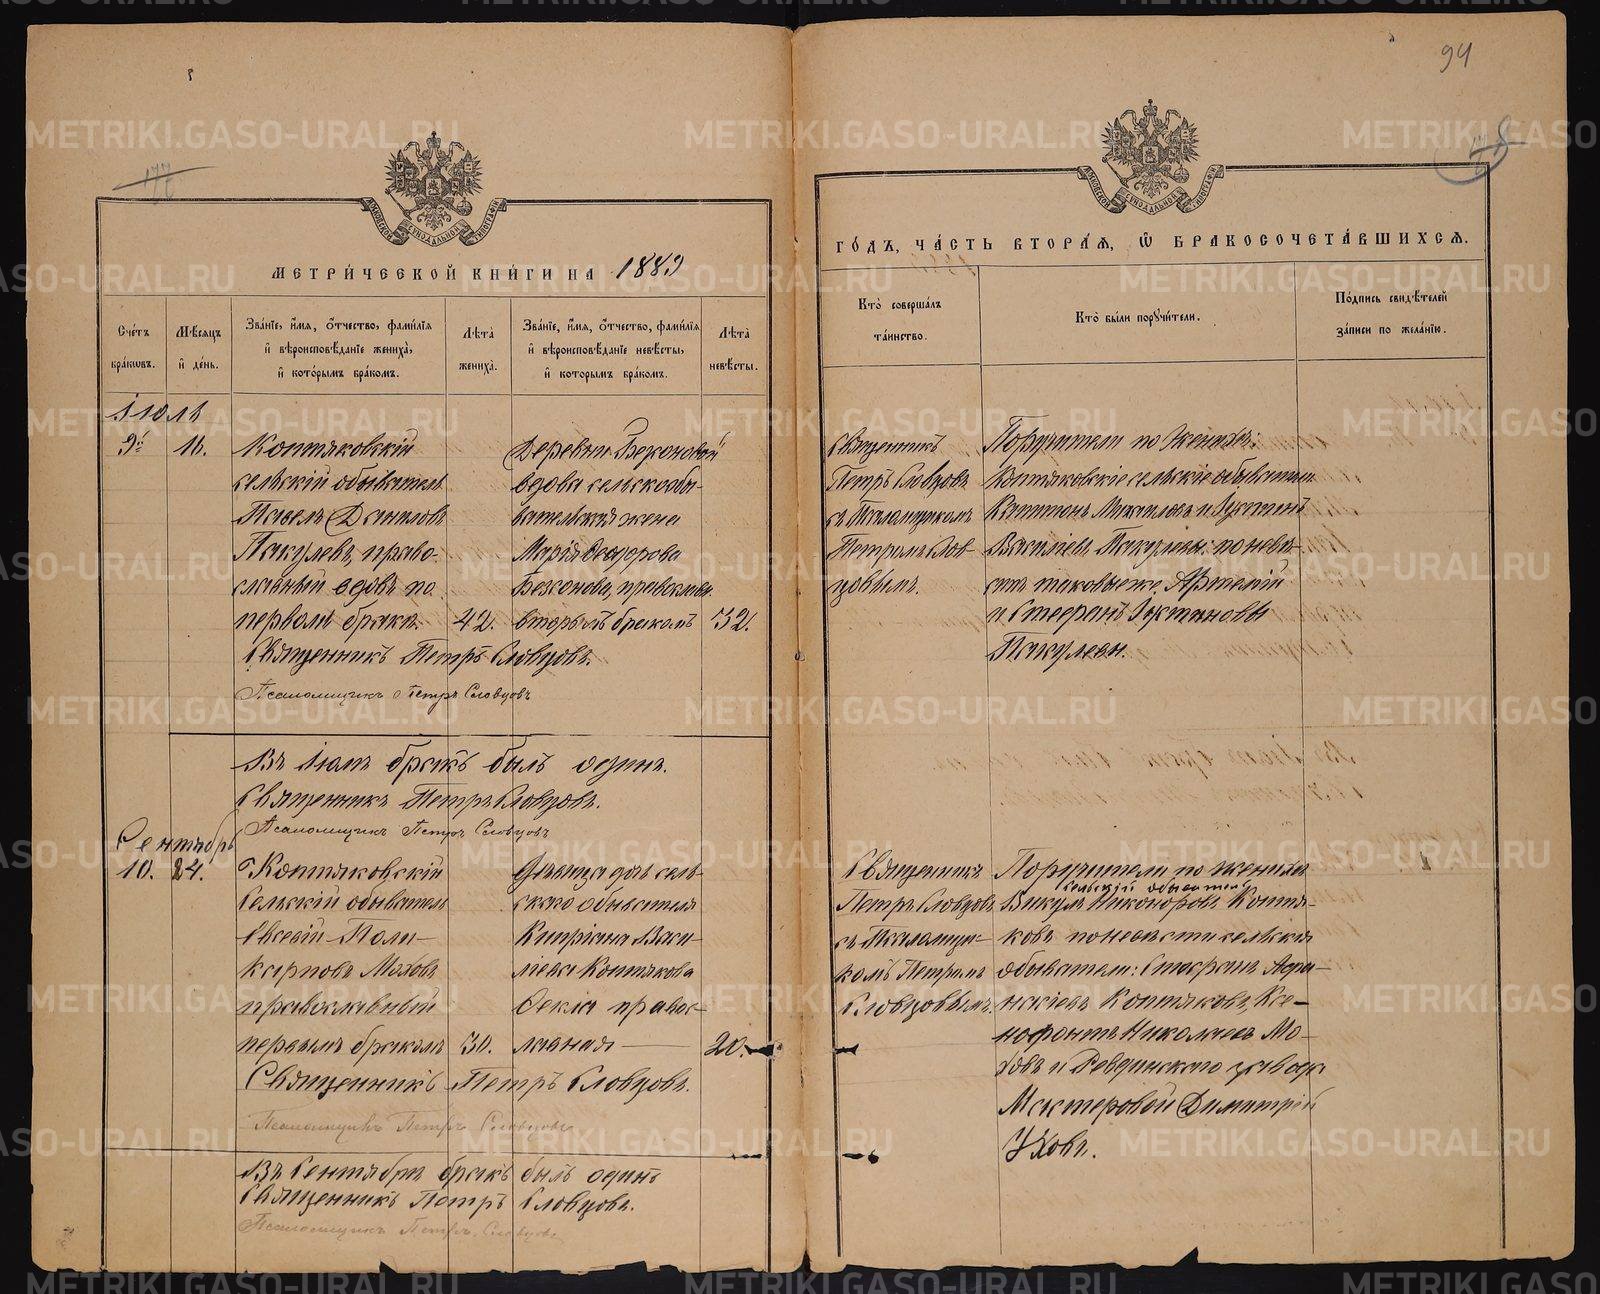 94
177
МЕТРИ́ЧЕСКОЙ КНИ́ГИ НА 1889
ГО́ДЪ, ЧА́СТЬ ВТОРА́Я, Ѽ БРАКОСОЧЕТА́ВШИХСЯ.
Сче́тъ бра́кωвъ.
Мѣ́сяцъ и҆ де́нь.
Зва́нїе, и҆́мя, ѻ҆́тчество, фами́лїя
и҆ вѣроисповѣ́данїе жениха̀,
и҆ кото́рымъ бра́комъ.
Лѣ́та жениха̀.
Зва́нїе, и҆́мя, ѻ҆́тчество, фами́лїя
и҆ вѣроисповѣ́данїе невѣ́сты,
и҆ кото́рымъ бра́комъ.
Лѣ́та невѣ́сты.
Кто̀ соверша́лъ
та́инство.
Кто̀ бы́ли порꙋчи́тели.
По́дпись свидѣ́телей
за́писи по жела́нїю.
Іюль
9й
16.
Коптяковскій
сельскій обыватель
Павелъ Даниловъ
Пакулевъ, право-
славный вдовъ по
первомъ бракѣ.
42.
Деревни Бехоновой
вдова сельскообы-
вательская жена
Марія Ѳеодорова
Бехонова, православн.
вторымъ бракомъ
32.
Священникъ Петръ Словцовъ.
Псаломщикъ Петръ Словцовъ
Священникъ
Петръ Словцовъ
съ Псаломщикомъ
Петромъ Слов-
цовымъ.
Поручители по женихѣ:
Коптяковскіе сельскіе обыватели
Капитонъ Михайловъ и Іустинъ
Василіевъ Пакулевы; по невѣ-
стѣ таковыеже Артемій
и Стефанъ Іустиновы
Пакулевы.
Въ Іюлѣ бракъ былъ одинъ.
Священникъ Петръ Словцовъ.
Псаломщикъ Петръ Словцовъ
Сентябрь
10.
24.
Коптяковскій
Сельскій обыватель
Евсевій Поли-
карповъ Моховъ
православный
первымъ бракомъ
30.
Дѣвица дочь сель-
скаго обывателя
Кипріана Васи-
ліева Коптякова
Ѳекла правос-
лавная
20.
Священникъ Петръ Словцовъ.
Псаломщикъ Петръ Словцовъ
Священникъ
Петръ Словцовъ
съ Псаломщи-
комъ Петромъ
Словцовымъ.
Поручители по женихѣ
сельскій обыватель
Викулъ Никоноровъ Коптя-
ковъ по невѣсти сельскія
обыватели: Стефанъ Аѳа-
насіевъ Коптяковъ, Ксе-
нофонтъ Николаевъ Мо-
ховъ и Ревдинскаго завода
Мастеровой Димитрій
Уховъ.
Въ Сентябрѣ бракъ былъ одинъ
Священникъ Петръ Словцовъ.
Псаломщикъ Петръ Словцовъ
METRIKI.GASO-URAL.RU